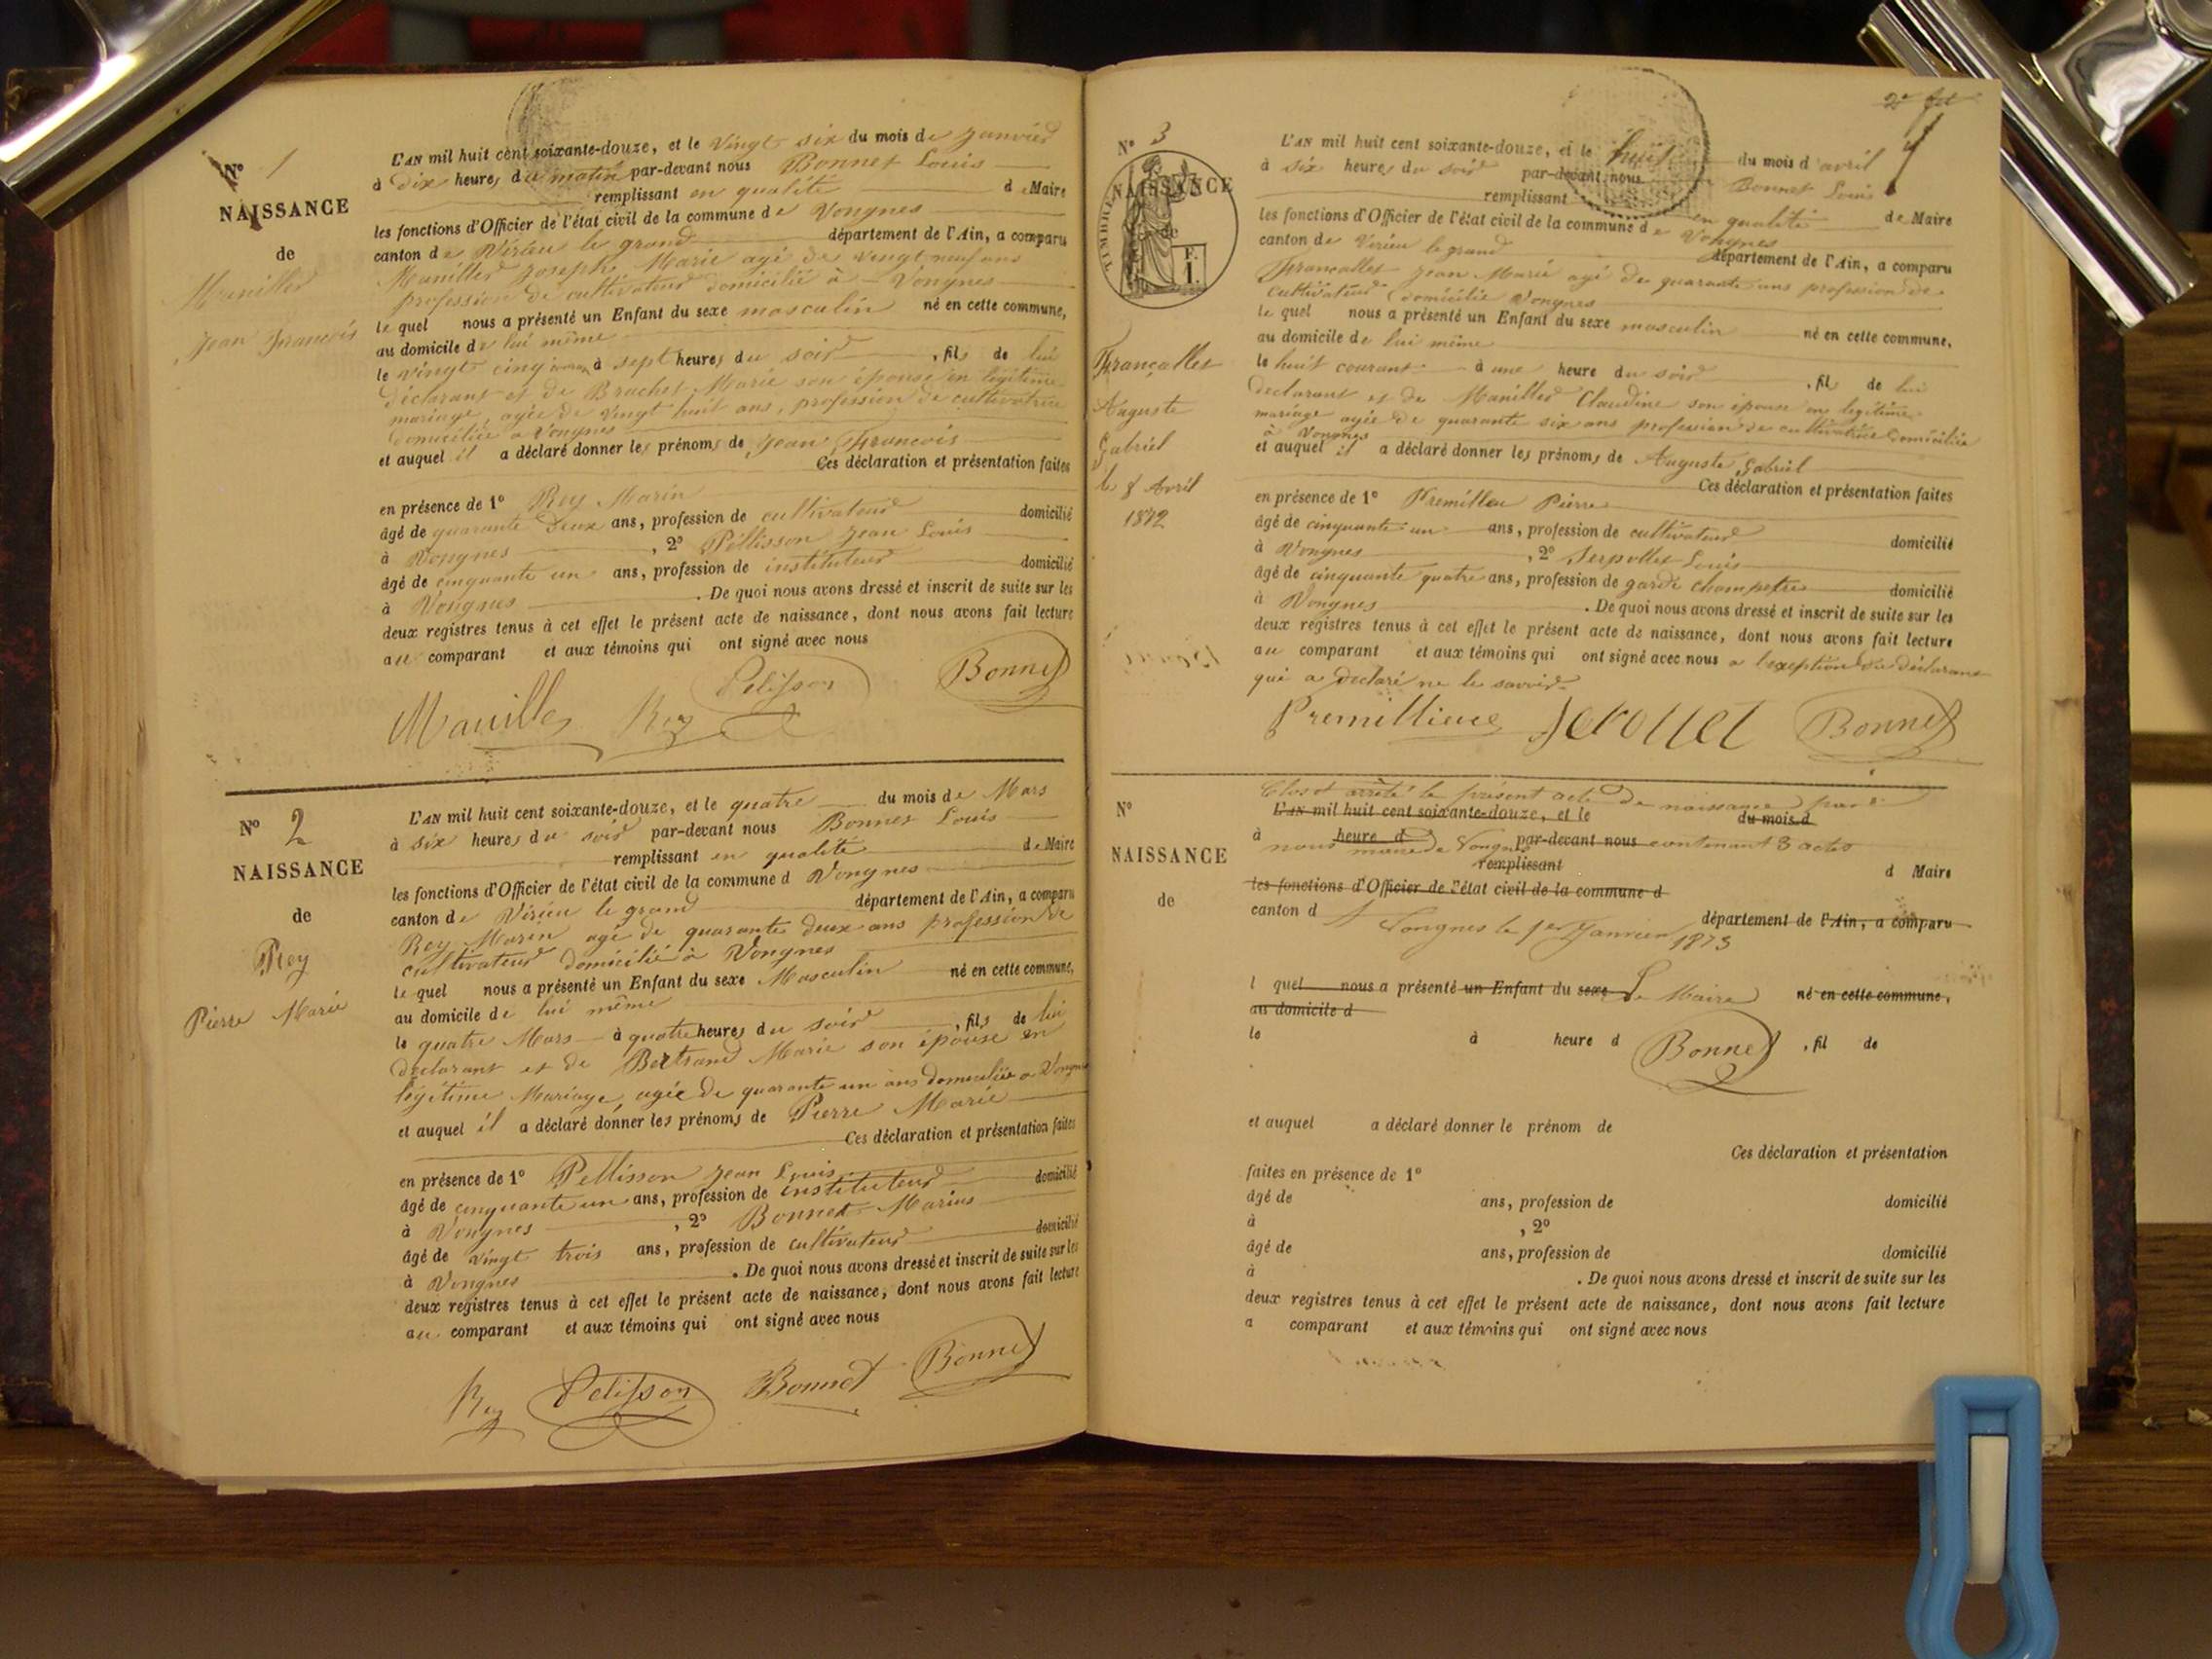 N° 1
NAISSANCE
de
Manillier
Jean François
L'AN mil huit cent soixante-douze, et le vingt six du mois de Janvier
à dix heures du matin par-devant nous Bonnet Louis
remplissant en qualité de Maire
les fonctions d'Officier de l'état civil de la commune de Vongnes
canton de Virieu le grand département de l'Ain, a comparu
Manillier Joseph Marie agé de vingt neuf ans
profession de cultivateur domicilié à Vongnes
le quel nous a présenté un Enfant du sexe masculin né en cette commune,
au domicile de lui même
le vingt cinq à sept heures du soir, fils de lui
déclarant et de Brachet Marie son épouse en légitime
mariage, agée de vingt huit ans, profession de cultivatrice
domiciliée à Vongnes
et auquel il a déclaré donner les prénoms de Jean François
Ces déclaration et présentation faites
en présence de 1° Rey Marin
âgé de quarante deux ans, profession de cultivateur domicilié
à Vongnes, 2° Pellisson Jean Louis
âgé de cinquante un ans, profession de instituteur domicilié
à Vongnes. De quoi nous avons dressé et inscrit de suite sur les
deux registres tenus à cet effet le présent acte de naissance, dont nous avons fait lecture
au comparant et aux témoins qui ont signé avec nous
Manillier Rey Pelisson Bonnet
N° 2
NAISSANCE
de
Rey
Pierre Marie
L'AN mil huit cent soixante-douze, et le quatre du mois de Mars
à six heures du soir par-devant nous Bonnet Louis
remplissant en qualité de Maire
les fonctions d'Officier de l'état civil de la commune d Vongnes
canton de Virieu le grand département de l'Ain, a comparu
Rey Marin agé de quarante deux ans profession de
cultivateur domicilié à Vongnes
le quel nous a présenté un Enfant du sexe Masculin né en cette commune,
au domicile de lui même
le quatre Mars à quatre heures du soir, fils de lui
déclarant et de Bertrand Marie son épouse en
légitime Mariage, agée de quarante un ans domiciliée à Vongnes
et auquel il a déclaré donner les prénoms de Pierre Marie
Ces déclaration et présentation faites
en présence de 1° Pellisson Jean Louis
âgé de cinquante un ans, profession de instituteur domicilié
à Vongnes, 2° Bonnet Marius
âgé de vingt trois ans, profession de cultivateur domicilié
à Vongnes. De quoi nous avons dressé et inscrit de suite sur les
deux registres tenus à cet effet le présent acte de naissance, dont nous avons fait lecture
au comparant et aux témoins qui ont signé avec nous
Rey Pelisson Bonnet Bonnet
2e fet
N° 3
NAISSANCE
de
TIMBRE
F.
1.
Françallet
Auguste
Gabriel
le 8 Avril
1872
L'AN mil huit cent soixante-douze, et le huit du mois d'avril
à six heures du soir par-devant nous Bonnet Louis
remplissant en qualité de Maire
les fonctions d'Officier de l'état civil de la commune de Vongnes
canton de Virieu le grand département de l'Ain, a comparu
Françallet Jean Marie agé de quarante ans profession de
cultivateur domicilié Vongnes
le quel nous a présenté un Enfant du sexe masculin né en cette commune,
au domicile de lui même
le huit courant à une heure du soir, fil de lui
déclarant et de Manillier Claudine son épouse en légitime
mariage agée de quarante six ans profession de cultivatrice domiciliée
à Vongnes
et auquel il a déclaré donner les prénoms de Auguste Gabriel
Ces déclaration et présentation faites
en présence de 1° Premillieu Pierre
âgé de cinquante un ans, profession de cultivateur domicilié
à Vongnes, 2° Serpollet Louis
âgé de cinquante quatre ans, profession de garde champetre domicilié
à Vongnes. De quoi nous avons dressé et inscrit de suite sur les
deux registres tenus à cet effet le présent acte de naissance, dont nous avons fait lecture
au comparant et aux témoins qui ont signé avec nous a l'exeption du déclarant
qui a declaré ne le savoir
Premillieu Bonnet
N°
NAISSANCE
de
Clos et arrêté le présent acte de naissance par
L'AN mil huit cent soixante-douze, et le du mois d
à heure d par-devant nous
nous maire de Vongnes contenant 3 actes
remplissant d Maire
les fonctions d'Officier de l'état civil de la commune d
canton d département de l'Ain, a comparu
A Vongnes le 1er Janvier 1873
l quel nous a présenté un Enfant du sexe né en cette commune,
Le Maire
au domicile d
le à heure d, fil de
Bonnet
et auquel a déclaré donner le prénom de
Ces déclaration et présentation
faites en présence de 1°
âgé de ans, profession de domicilié
à, 2°
âgé de ans, profession de domicilié
à. De quoi nous avons dressé et inscrit de suite sur les
deux registres tenus à cet effet le présent acte de naissance, dont nous avons fait lecture
a comparant et aux témoins qui ont signé avec nous